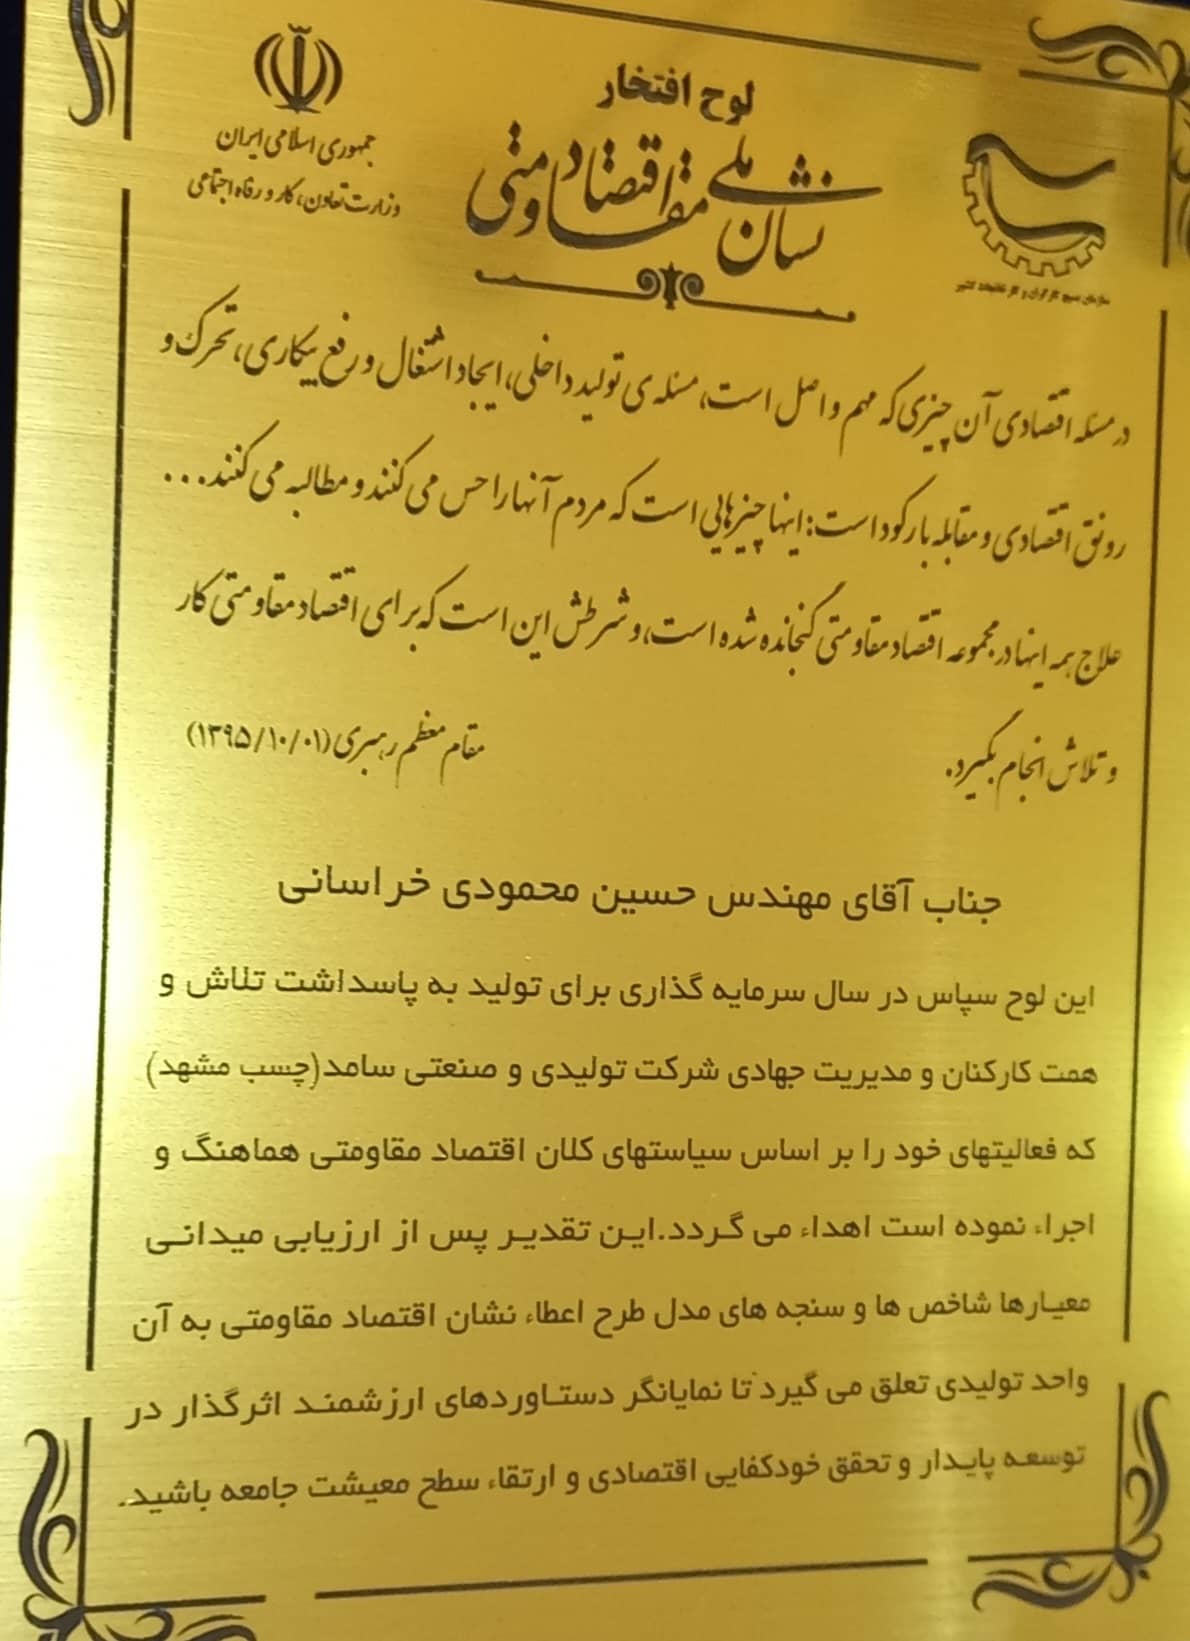 لوح افتخار
نشان ملی اقتصاد مقاومتی
جمهوری اسلامی ایران
وزارت تعاون، کار و رفاه اجتماعی
سازمان بسیج کارگران و کارخانجات کشور
در مسئله اقتصادی آن چیزی که مهم و اصل است، مسئله ی تولید داخلی، ایجاد اشتغال و رفع بیکاری، تحرک و
رونق اقتصادی و مقابله با رکود است: اینها چیزهایی است که مردم آنها را حس می کنند و مطالبه می کنند...
علاج همه اینها در مجموعه اقتصاد مقاومتی گنجانده شده است، و شرطش این است که برای اقتصاد مقاومتی کار
و تلاش انجام بگیرد.
مقام معظم رهبری (۱۳۹۵/۱۰/۰۱)
جناب آقای مهندس حسین محمودی خراسانی
این لوح سپاس در سال سرمایه گذاری برای تولید به پاسداشت تلاش و
همت کارکنان و مدیریت جهادی شرکت تولیدی و صنعتی سامد(چسب مشهد)
که فعالیتهای خود را بر اساس سیاستهای کلان اقتصاد مقاومتی هماهنگ و
اجراء نموده است اهداء می گردد.این تقدیر پس از ارزیابی میدانی
معیارها شاخص ها و سنجه های مدل طرح اعطاء نشان اقتصاد مقاومتی به آن
واحد تولیدی تعلق می گیرد تا نمایانگر دستاوردهای ارزشمند اثرگذار در
توسعه پایدار و تحقق خودکفایی اقتصادی و ارتقاء سطح معیشت جامعه باشید.